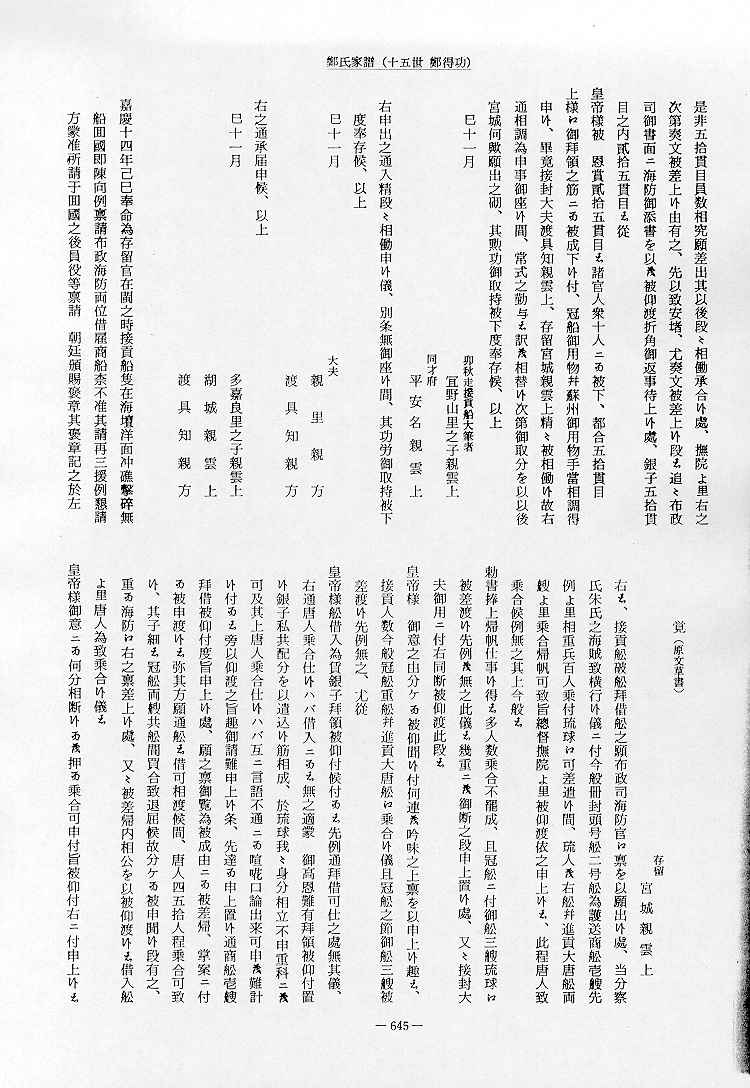 鄭氏家譜（十五世 鄭得功）
是非五拾貫目員数相究願差出其以後段〻相働承合ㇵ處、撫院ゟ里右之
次第奏文被差上ㇵ由有之、先以致安堵、尤奏文被差上ㇵ段ㇵ追〻布政
司御書面ニ海防御添書を以茂被仰渡折角御返事待上ㇵ處、銀子五拾貫
目之内貳拾五貫目ㇵ從
皇帝様被　恩賞貳拾五貫目ㇵ諸官人衆十人ニ而被下、都合五拾貫目
上様江御拝領之筋ニ而被成下ㇵ付、冠船御用物幷蘇州御用物手當相調得
申ㇵ、畢竟接封大夫渡具知親雲上、存留宮城親雲上精〻被相働ㇵ故右
通相調為申事御座ㇵ間、常式之勤与ㇵ訳茂相替ㇵ次第御取分を以以後
宮城何歟願出之砌、其勲功御取持被下度奉存候、以上
巳十一月
卯秋走接貢船大筆者
宜野山里之子親雲上
同才府
平安名親雲上
右申出之通入精段〻相働申ㇵ儀、別条無御座ㇵ間、其功労御取持被下
度奉存候、以上
巳十一月
大夫
親里親方
渡具知親方
右之通承届申候、以上
巳十一月
多嘉良里之子親雲上
湖城親雲上
渡具知親方
嘉慶十四年己巳奉命為存留官在閩之時接貢船隻在海壇洋面冲礁擊碎無
船囬國即陳向例禀請布政海防両位借雇商船柰不准其請再三援例懇請
方蒙准所請于囬國之後員役等禀請　朝廷頒賜褒章其褒章記之於左
覚（原文草書）
存留
宮城親雲上
右ㇵ、接貢舩破舩拜借舩之願布政司海防官江禀を以願出ㇵ處、当分蔡
氏朱氏之海賊致横行ㇵ儀ニ付今般冊封頭号舩二号舩為護送商舩壱艘先
例ゟ里相重兵百人乗付琉球江可差遣ㇵ間、琉人茂右舩幷進貢大唐舩両
艘ゟ里乗合帰帆可致旨總督撫院ゟ里被仰渡依之申上ㇵㇵ、此程唐人致
乗合候例無之其上今般ㇵ
勅書捧上帰帆仕事ㇵ得ㇵ多人数乗合不罷成、且冠舩ニ付御舩三艘琉球江
被差渡ㇵ先例茂無之此儀ㇵ幾重ニ茂御断之段申上置ㇵ處、又〻接封大
夫御用ニ付右同断被仰渡此段ㇵ
皇帝様　御意之由分ケ而被仰聞ㇵ付何連茂吟味之上禀を以申上ㇵ趣ㇵ、
接貢人数今般冠舩重舩幷進貢大唐舩江乗合ㇵ儀且冠舩之節御舩三艘被
差渡ㇵ先例無之、尤從
皇帝様舩借入為賃銀子拜領被仰付候付而ㇵ先例通拜借可仕之處無其儀、
右通唐人乗合仕ㇵハバ借入ニ而ㇵ無之適蒙　御高恩難有拜領被仰付置
ㇵ銀子私共配分を以遣込ㇵ筋相成、於琉球我〻身分相立不申重科ニ茂
可及其上唐人乗合仕ㇵハバ互ニ言語不通ニ而喧嘩口論出来可申茂難計
ㇵ付而ㇵ旁以仰渡之旨趣御請難申上ㇵ条、先達而申上置ㇵ通商舩壱艘
拜借被仰付度旨申上ㇵ處、願之禀御覧為被成由ニ而被差帰、掌案ニ付
而被申渡ㇵㇵ弥其方願通舩ㇵ借可相渡候間、唐人四五拾人程乗合可致
ㇵ、其子細ㇵ冠舩両艘共舩間買合致退屈候故分ケ而被申聞ㇵ段有之、
重而海防江右之禀差上ㇵ處、又〻被差帰内相公を以被仰渡ㇵㇵ借入舩
ゟ里唐人為致乗合ㇵ儀ㇵ
皇帝様御意ニ而何分相断ㇵ而茂押而乗合可申付旨被仰付右ニ付申上ㇵㇵ
— 645 —